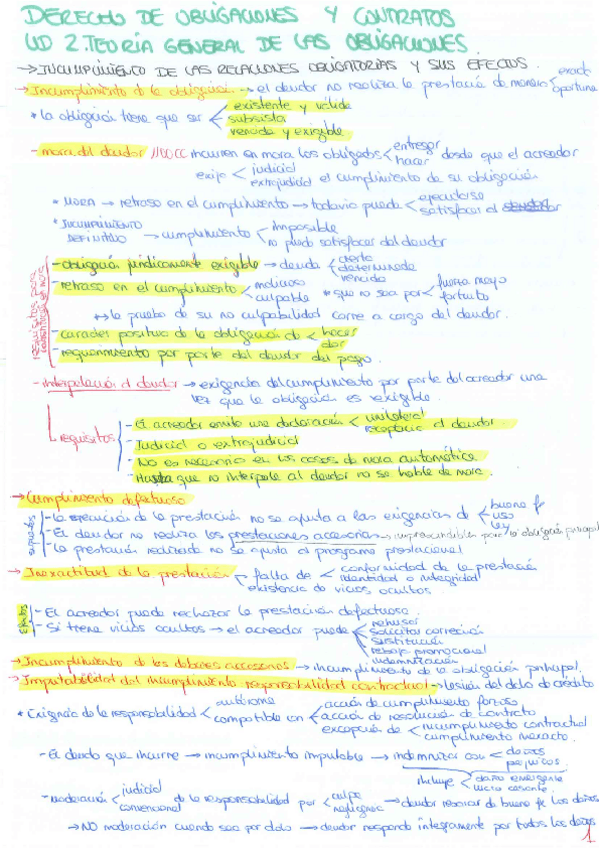 DERECHO DE OBLIGACIONES Y CONTRATOS
UD 2. TEORÍA GENERAL DE LAS OBLIGACIONES.
→ INCUMPLIMIENTO DE LAS RELACIONES OBLIGATORIAS Y SUS EFECTOS.
→ Incumplimiento de la obligación → el deudor no realiza la prestación de manera < exacta
oportuna
* la obligación tiene que ser < existente y válida
subsista
vencida y exigible
- mora del deudor 1100CC incurren en mora los obligados < entregar
hacer
desde que el acreedor
exija < judicial
extrajudicial
el cumplimiento de su obligación
* MORA → retraso en el cumplimiento → todavía puede < ejecutarse
satisfacer al
* INCUMPLIMIENTO DEFINITIVO → cumplimiento < imposible
no puede satisfacer del deudor
requisitos para
- obligación jurídicamente exigible → deuda < cierta
determinada
vencida
- retraso en el cumplimiento < malicioso
culpable
* que no sea por < fuerza mayor
fortuito
↳ la prueba de su no culpabilidad corre a cargo del deudor.
- carácter positivo de la obligación de < hacer
dar
- requerimiento por parte del deudor del pago.
- interpelación al deudor → exigencia del cumplimiento por parte del acreedor una
vez que la obligación es exigible.
requisitos
- El acreedor emite una declaración < unilateral
recepticia al deudor.
- Judicial o extrajudicial
- No es necesario en los casos de mora automática
- Hasta que no interpele al deudor no se habla de mora.
→ Cumplimiento defectuoso
supuestos
- La ejecución de la prestación no se ajusta a las exigencias de < buena fe
uso
ley
- El deudor no realiza las prestaciones accesorias → imprescindibles para la obligación principal
- La prestación realizada no se ajusta al programa prestacional
→ Inexactitud de la prestación
falta de < conformidad de la prestación
identidad o integridad
existencia de vicios ocultos.
efectos
- El acreedor puede rechazar la prestación defectuosa.
- Si tiene vicios ocultos → el acreedor puede < rehusar
solicitar corrección
sustitución
rebaja promocional
indemnización
→ Incumplimiento de los deberes accesorios → incumplimiento de la obligación principal.
→ Imputabilidad del incumplimiento responsabilidad contractual → lesión del dcho de crédito
* Exigencia de la responsabilidad < autónoma
compatible con < acción de cumplimiento forzoso
acción de resolución de contrato
excepción de < incumplimiento contractual
cumplimiento inexacto.
- El deudor que incurre → incumplimiento imputable → indemnizar con < daños
perjuicios
incluye < daño emergente
lucro cesante
- moderación < judicial
convencional
de la responsabilidad por < culpa
negligencia
→ deudor resarcir de buena fe los daños
→ NO moderación cuando sea por dolo → deudor responde íntegramente por todos los daños
1